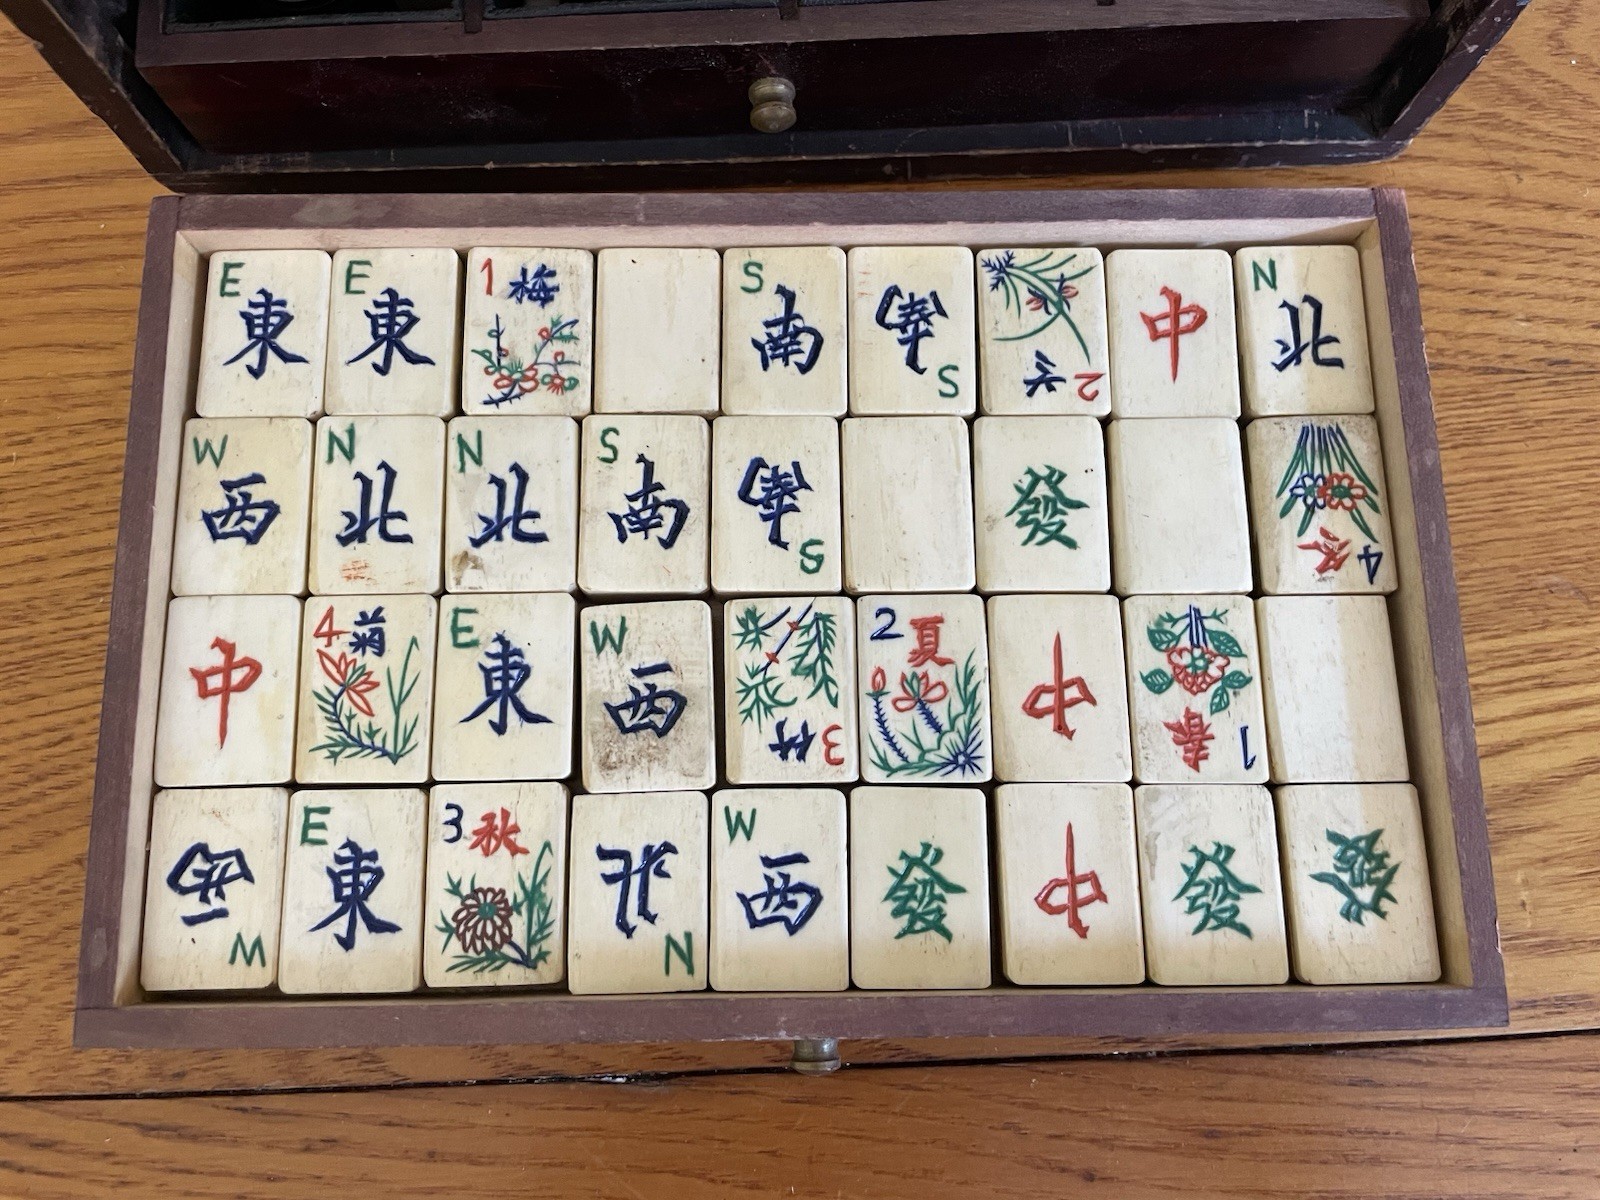 E
東
E
東
1 梅
S
南
S
南
2 兰
中
N
北
W
西
N
北
N
北
S
南
S
南
發
4 冬
中
4 菊
E
東
W
西
3 竹
2 夏
中
1 春
W
西
E
東
3 秋
N
北
W
西
發
中
發
發